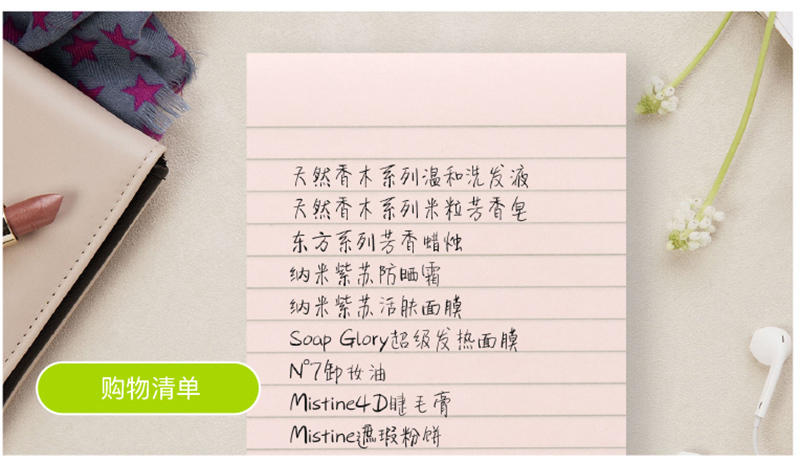 天然香木系列温和洗发液
天然香木系列米粒芳香皂
东方系列芳香蜡烛
纳米紫苏防晒霜
纳米紫苏活肤面膜
Soap Glory超级发热面膜
N°7卸妆油
Mistine4D睫毛膏
Mistine遮瑕粉饼
购物清单